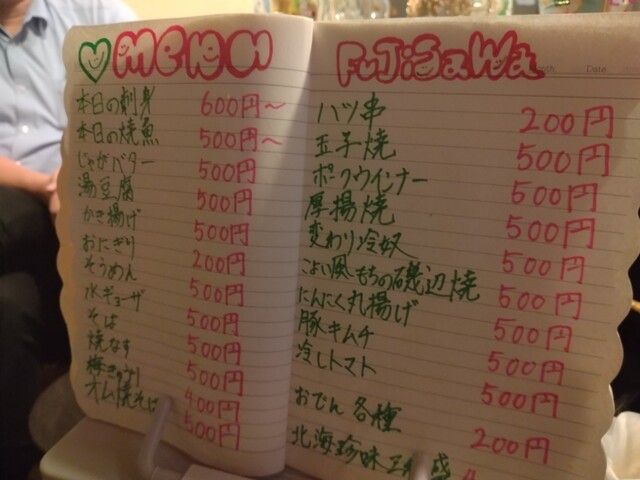 MENU
本日の刺身 600円～
本日の焼魚 500円～
じゃがバター 500円
湯豆腐 500円
かき揚げ 500円
おにぎり 200円
そうめん 500円
水ギョーザ 500円
そば 500円
焼なす 500円
梅きゅうり 400円
オム焼そば 500円
FuJiSaWa
Date
ハツ串 200円
玉子焼 500円
ポークウインナー 500円
厚揚焼 500円
変わり冷奴 500円
こよい風もちの磯辺焼 500円
にんにく丸揚げ 500円
豚キムチ 500円
冷しトマト 500円
おでん 各種 200円
北海珍味三 盛